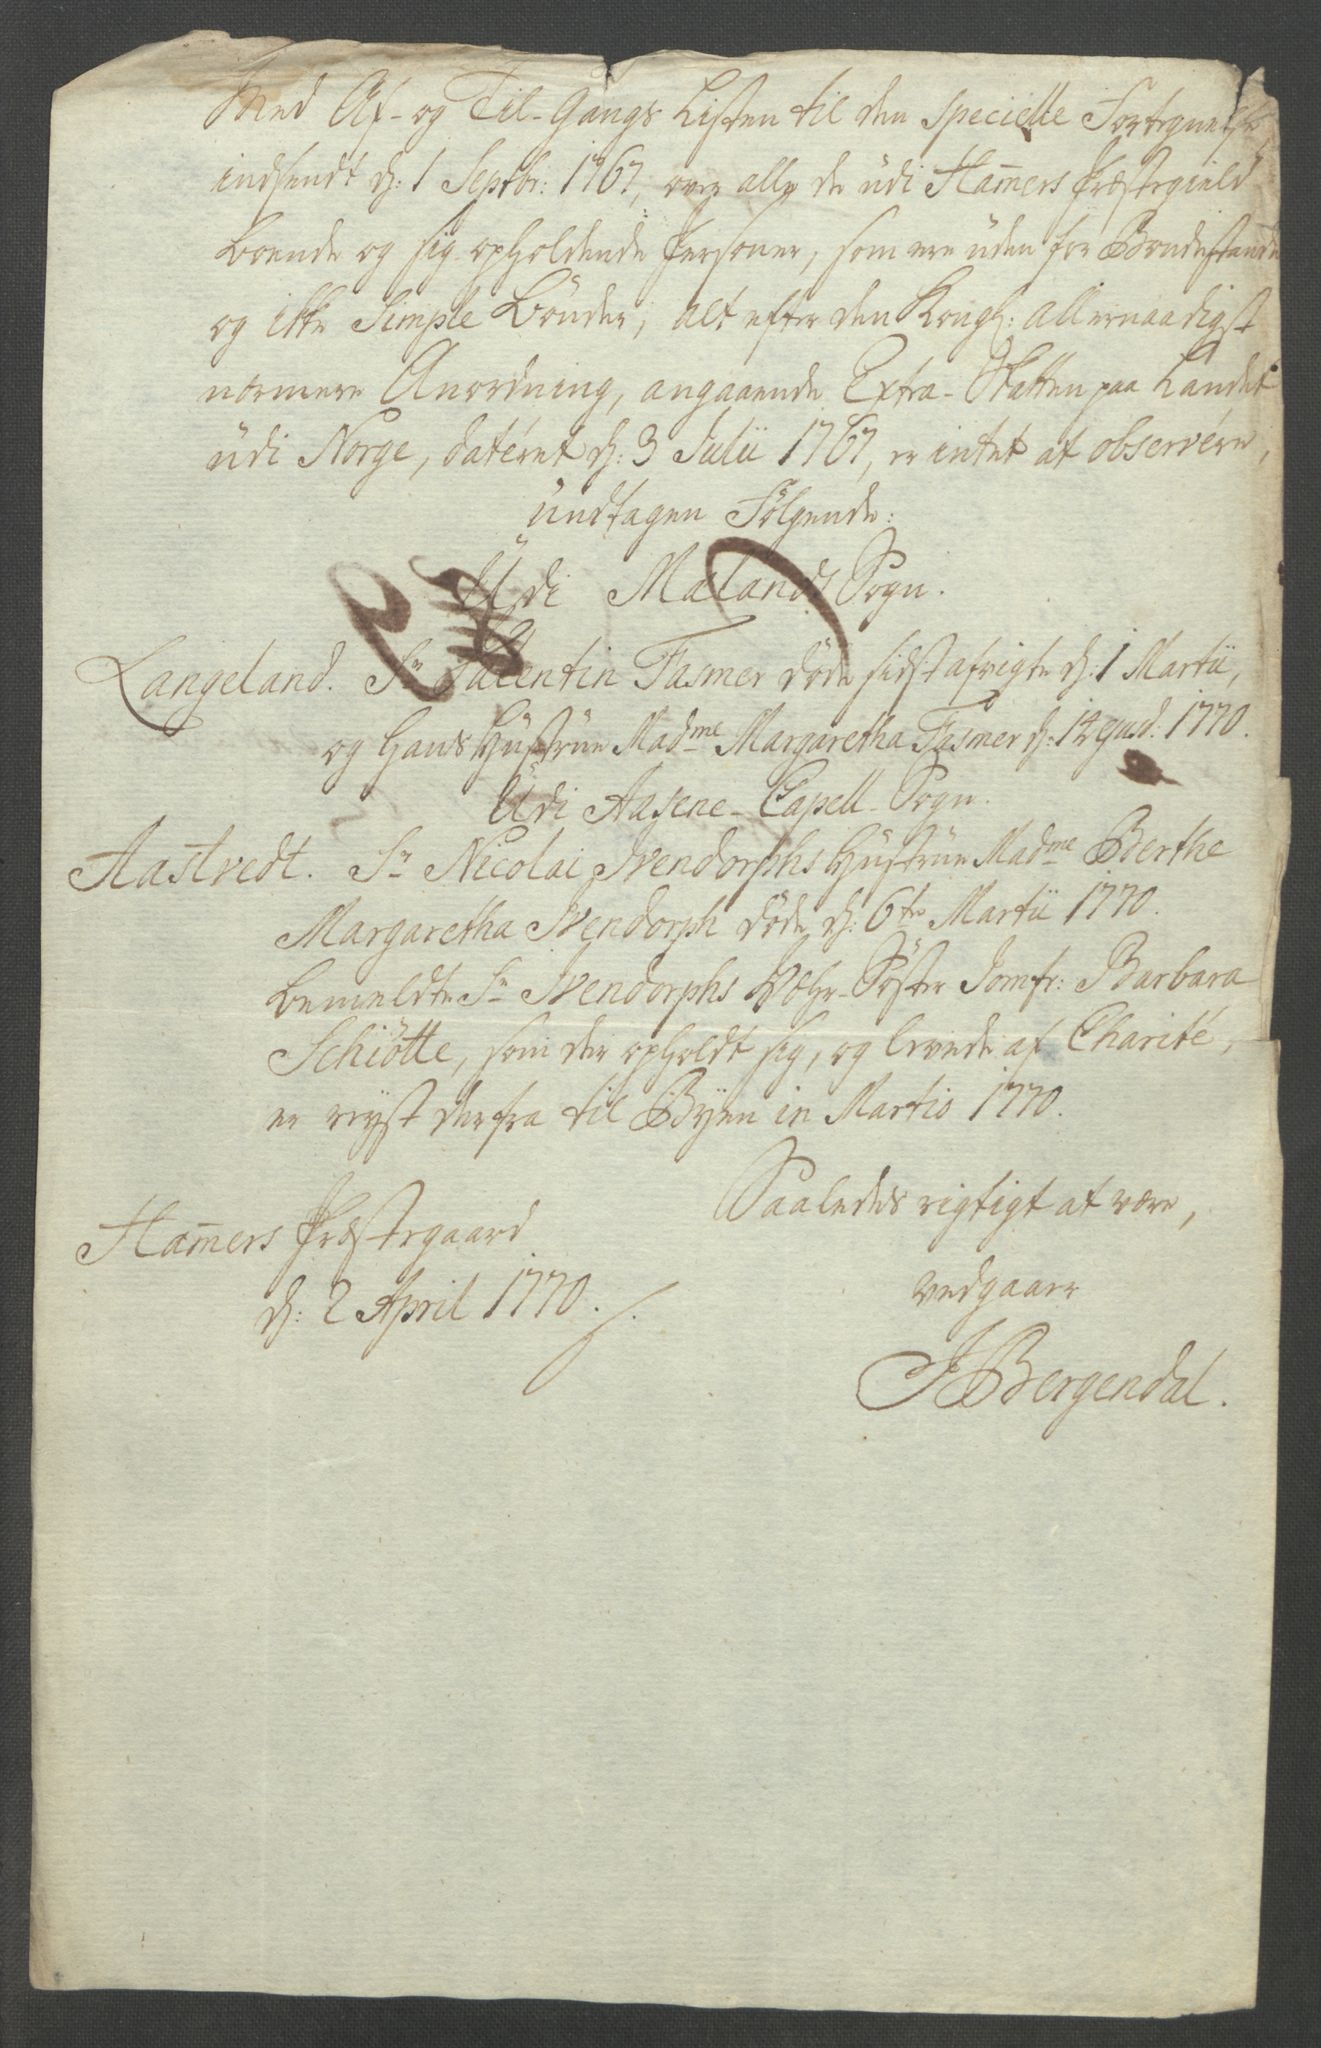 Med Af- og Til-Gangs Listen til den Specielle Fortegnelse
indsendt d: 1 Septbr: 1767, over alle de üdi Ham̄ers Præstegield
boende og sig opholdende Personer, som ere uden for Bondestanden
og ikke Simple Bönder, alt efter den Kongl: allernaadigst
nærmere Anordning, angaaende Extra-Skatten paa Landet
üdi Norge, datéret d: 3 Julii 1767, er intet at observére,
ündtagen Fölgende:
Üdi Malands Sogn.
Langeland. Sr Valentin Fasmer döde sidstafvigte d: 1 Martii,
og hans Hüstrüe Madme Margaretha Fasmer d: 14 ejusd. 1770.
Üdi Aasene-Capell-Sogn.
Aastvedt. Sr Nicolai Wendorphs Hüstrüe Madme Berthe
Margaretha Wendorph döde d: 6te Martii 1770.
bemeldte Sr Wendorphs Söster Jomfr: Barbara
Schiötte, som der opholdt sig, og levede af Charité,
er reyst derfra til Byen in Martio 1770.
Saaledes rigtigt at være,
Ham̄ers Præstegaard
vedgaaer
d: 2 April 1770.
J Bergendal.